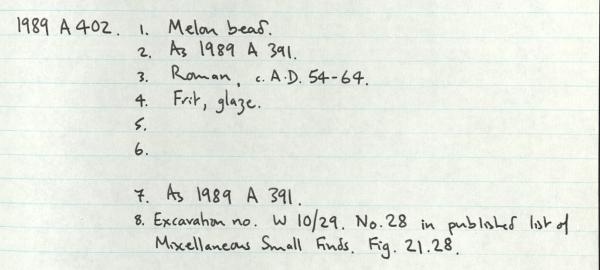 1989 A 402. 1. Melon bead.
2. As 1989 A 391.
3. Roman, c. A.D. 54-64.
4. Frit, glaze.
5.
6.
7. As 1989 A 391.
8. Excavation no. W 10/29. No. 28 in published list of
Miscellaneous Small Finds. Fig. 21.28.